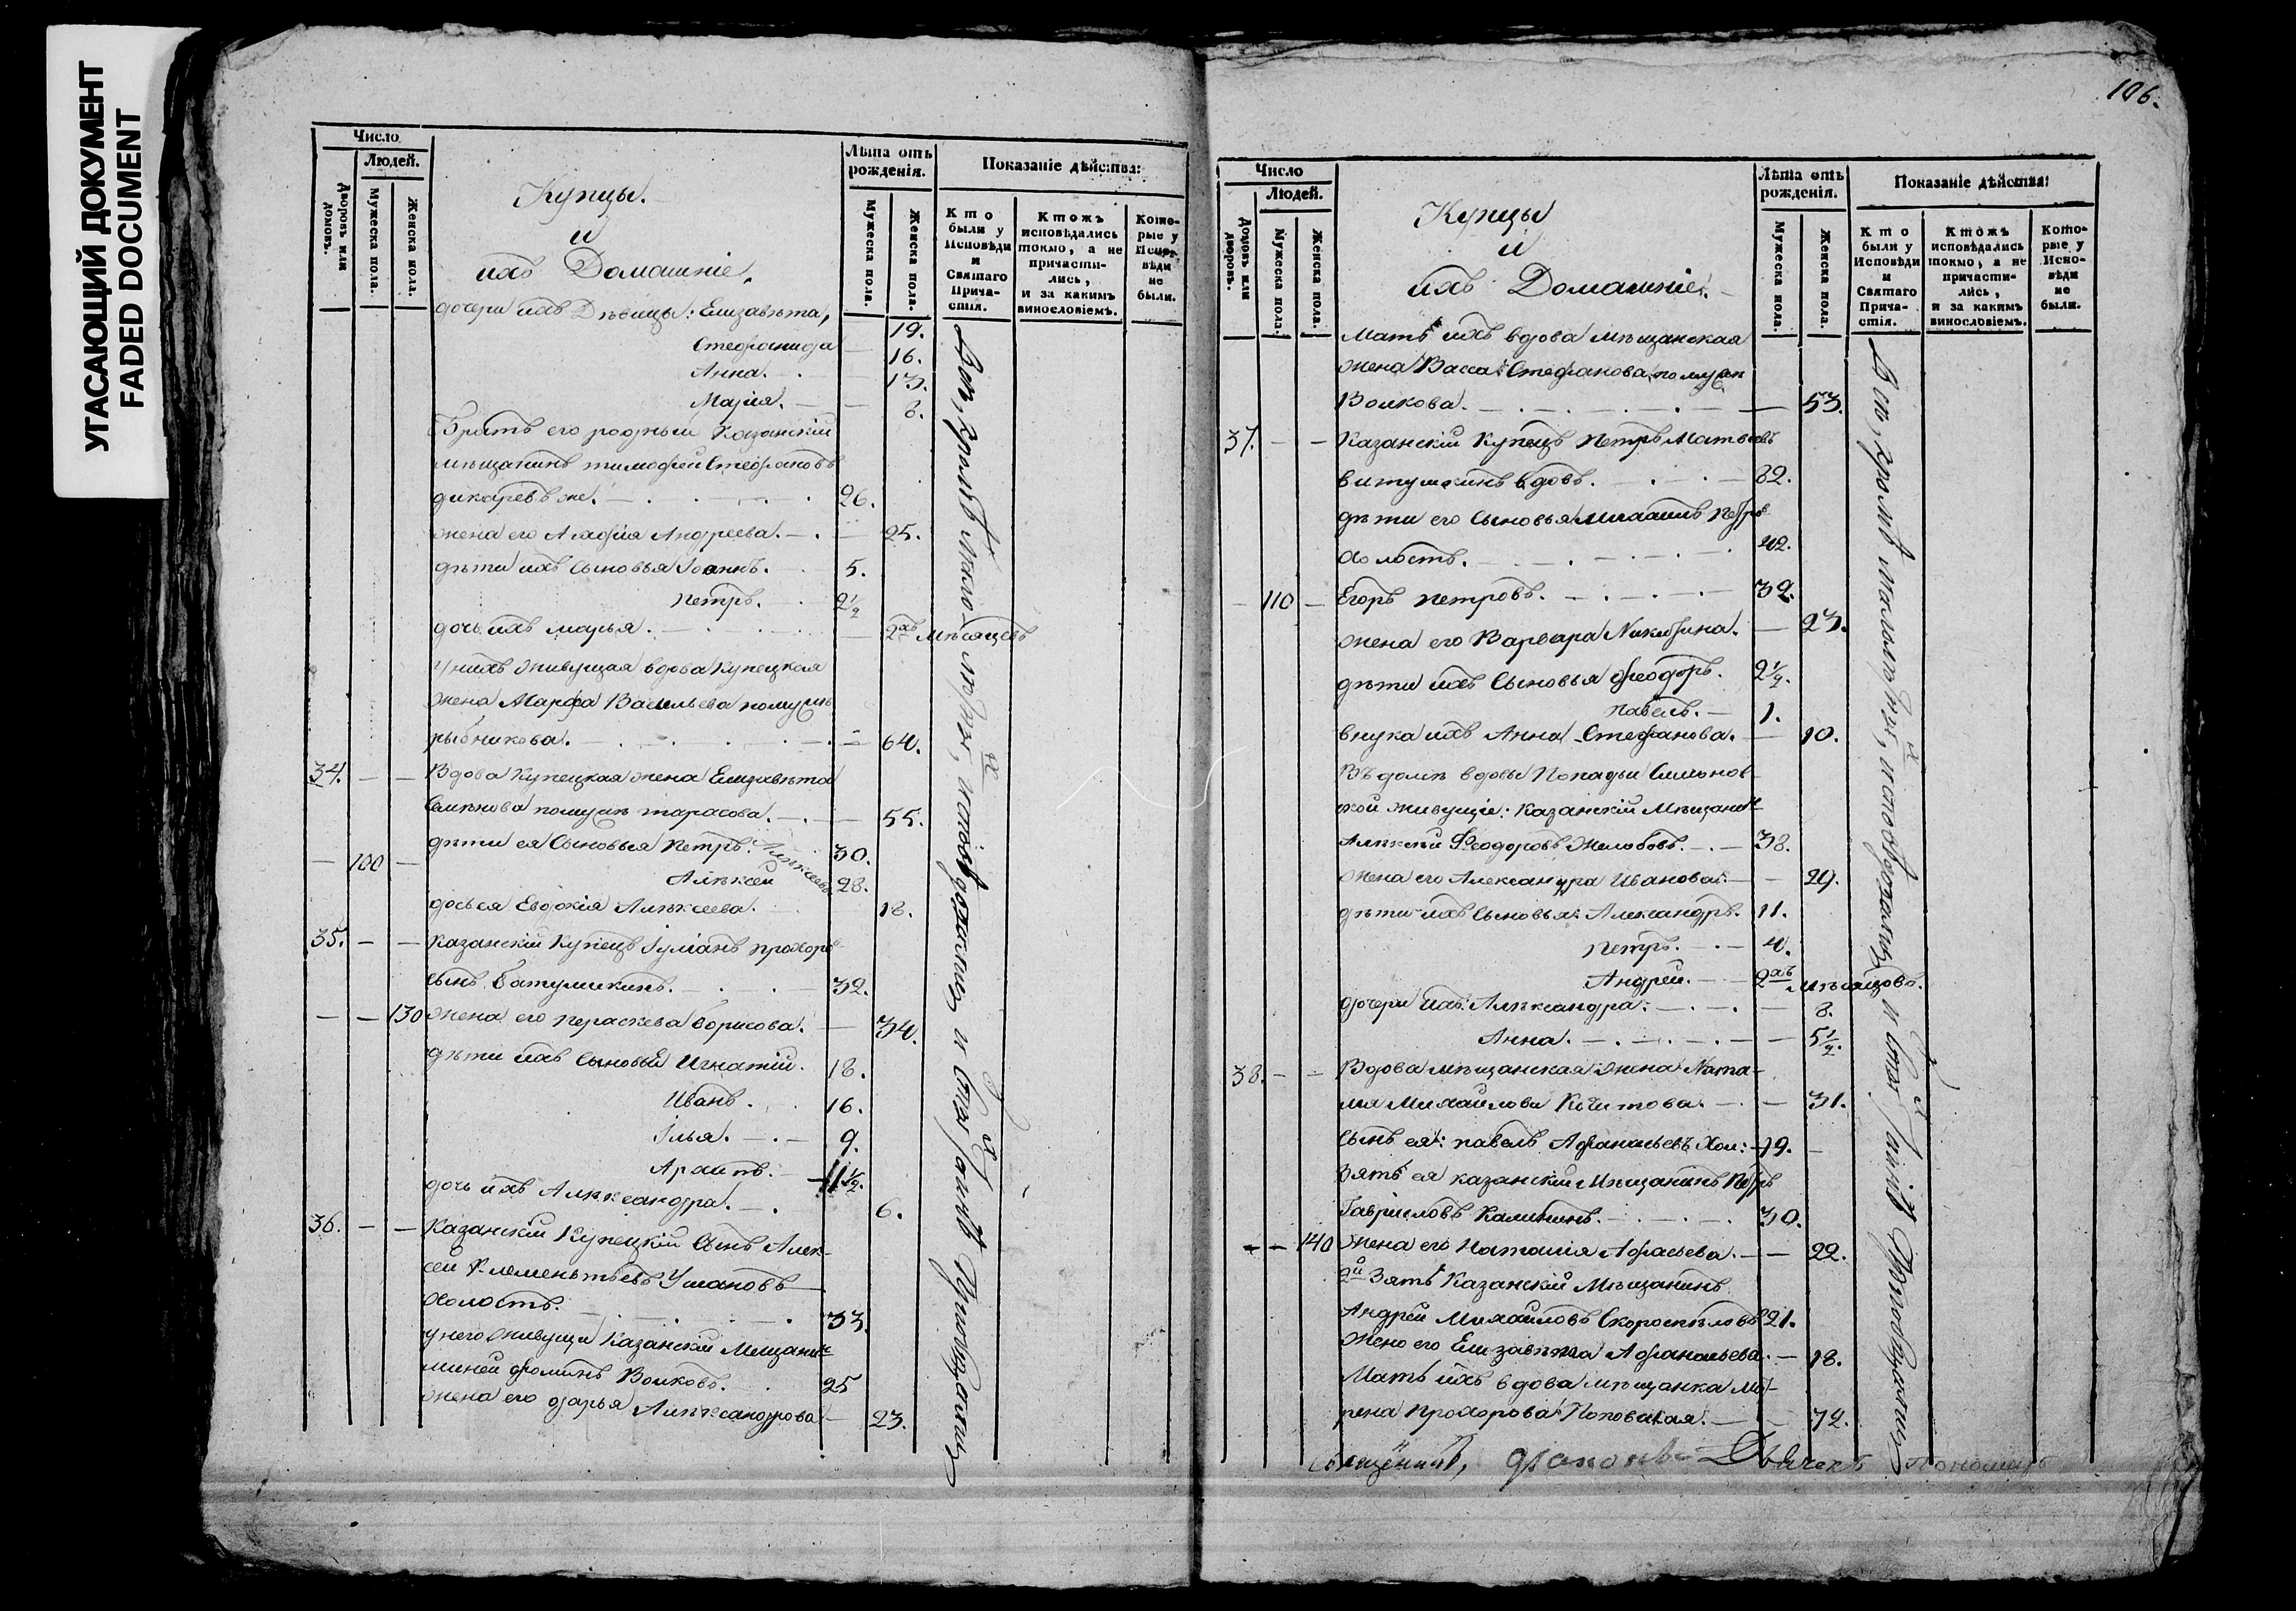 УГАСАЮЩИЙ ДОКУМЕНТ
FADED DOCUMENT
Число
Людей.
Дворовъ или домовъ.
Мужеска пола.
Женска пола.
Купцы.
и
ихъ Домашніе.
Лѣта отъ рожденія.
Мужеска пола.
Женска пола.
Показаніе дѣйства:
Кто были у Исповѣди и Святаго Прича-стія.
Ктожъ исповѣдались токмо, а не причасти-лись, и за какимъ винословіемъ.
Кото-рые у Испо-вѣди не были.
дочери ихъ Дѣвицы: Елизавѣта, 19.
Стефанида — 16.
Анна. — 13.
Марія. — 8.
Братъ его родный Казанскій
мѣщанинъ тимофей Стефановъ
дикаревъ же. 26.
жена его Агафія Андреева. — 25.
дѣти ихъ Сыновья Іоаннъ. 5.
петръ. 2 1/2
дочь ихъ марья. — 2хъ мѣсяцевъ
У нихъ живущая вдова Купецкая
жена Марфа Васильева по мужѣ
рыбникова. — 64.
34. — — Вдова Купецкая жена Елизавѣта
Семѣнова по мужѣ тарасова. — 55.
дѣти ея Сыновья Петръ Алѣксеевъ 30.
— 100 — Алѣксей 28.
дочь ея Евдокія Алѣксеева. 18.
35. — — Казанскій Купецъ Іуліанъ прохоръ
Сынъ батушкинъ. 32.
— — 130 жена его параскева борисова. — 34.
дѣти ихъ Сыновья Игнатій. 18.
Иванъ. 16.
Ілья. 9.
1 1/2.
дочь ихъ Алѣксандра. 6.
36. — — Казанскій Купецкій Сынъ Алек-
сей Клеменьтьевъ Ушановъ
холостъ. 33.
у него живущи Казанскій Мещанин
Фоминъ Волковъ. 25
жена его дарья Алѣксандрова — 23.
Всѣ, кромѣ малолѣтныхъ, исповѣдались и Стыхъ Таинъ Приобщались
106.
Число
Людей.
Дворовъ или домовъ.
Мужеска пола.
Женска пола.
Купцы
и
ихъ Домашніе.
Лѣта отъ рожденія.
Мужеска пола.
Женска пола.
Показаніе дѣйства:
Кто были у Исповѣди и Святаго Прича-стія.
Ктожъ исповѣдались токмо, а не причасти-лись, и за какимъ винословіемъ.
Кото-рые у Испо-вѣди не были.
Мать ихъ вдова мѣщанская
жена Васса Стефанова по мужѣ
Волкова. — 53.
37. — — Казанскій Купецъ Петръ Матвеевъ
витушкинъ вдовъ. 82.
дѣти его Сыновья Михаилъ Петровъ
холостъ. 42.
— 110 — Егоръ петровъ. 32.
жена его Варвара Никитина. — 23.
дѣти ихъ Сыновья Феодоръ. 2 1/2.
павелъ. 1.
внука ихъ Анна Стефанова. — 10.
Въ домѣ вдовы Попадьи Симонов-
ской живущіе: Казанскій Мѣщанин
Алѣксѣй Феодоровъ Желобовъ. 38.
жена его Александра Иванова. — 29.
дѣти ихъ Сыновья: Александръ. 11.
петръ. 4.
Андрей. 2хъ мѣсяцовъ.
дочери ихъ: Алѣксандра. — 8.
Анна. — 5 1/2.
38. — — Вдова мѣщанская жена Ната-
лія Михайлова — 31.
Сынъ ея: павелъ Афанасьевъ Хол: 19.
Зять ея казанскій Мѣщанинъ Петръ
Гавриловъ Калининъ. 30.
— — 140 жена его Наталія Афасьева. — 22.
2й Зять Казанскій Мѣщанинъ
Андрей Михайловъ Скороспѣловъ 21.
Жена его Елизавѣта Афанасьева. — 18.
Мать ихъ вдова мѣщанка Мат-
рена Прохорова Поповская. — 72.
Всѣ, кромѣ малолѣтныхъ, исповѣдались и Стыхъ Таинъ Приобщались
Священникъ, Діаконъ Дьячекъ Пономарь